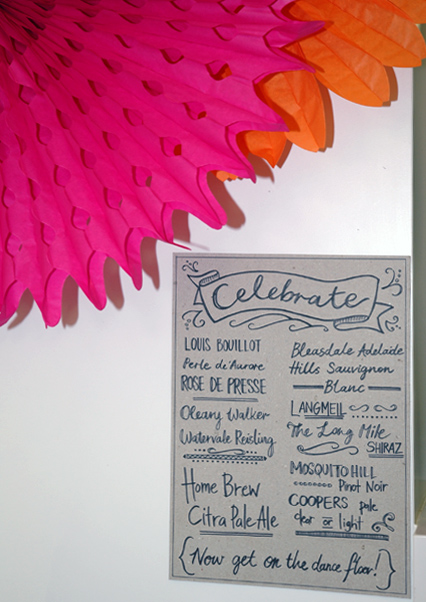 Celebrate
LOUIS BOUILLOT
Perle de'Aurore
ROSE DE PRESSE
Oleary Walker
Watervale Reisling
Home Brew
Citra Pale Ale
Bleasdale Adelaide
Hills Sauvignon
Blanc
LANGMEIL
The Long Mile
SHIRAZ
MOSQUITO HILL
Pinot Noir
COOPERS pale
clear or light
{Now get on the dance floor!}